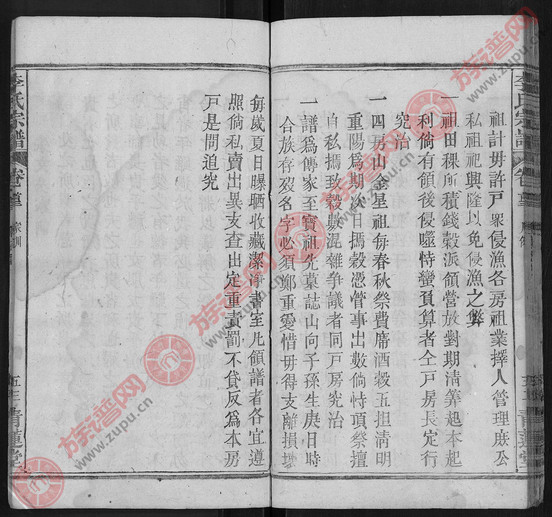 祖計毋許戶眾侵漁各房祖業擇人管理庶公
私祖祀興隆以免侵漁之弊
一祖田稞所積錢穀派領營放對期清筭起本起
利倘有領後侵噬恃蠻負算者仝戶房長定行
究治
一四房山金星祖每春秋祭費席酒穀五担清明
重陽為期次日搗穀憑管事出數倘恃頑祭擅
自私搗致穀數混雜爭議者同戶房究治
一譜為傳家至寶祖先墓誌山向子孫生庚日時
合族存歿名字必須鄭重愛惜毋得支離損壞
每歲夏日曝晒收藏潔淨書室凡領譜者各宜遵
照倘私賣出異支查出定重責罰不貸反為本房
戶是問追究
李氏宗譜
卷首
家訓
青蓮堂
李氏宗譜
卷首
青蓮堂
族谱网
www.zupu.cn